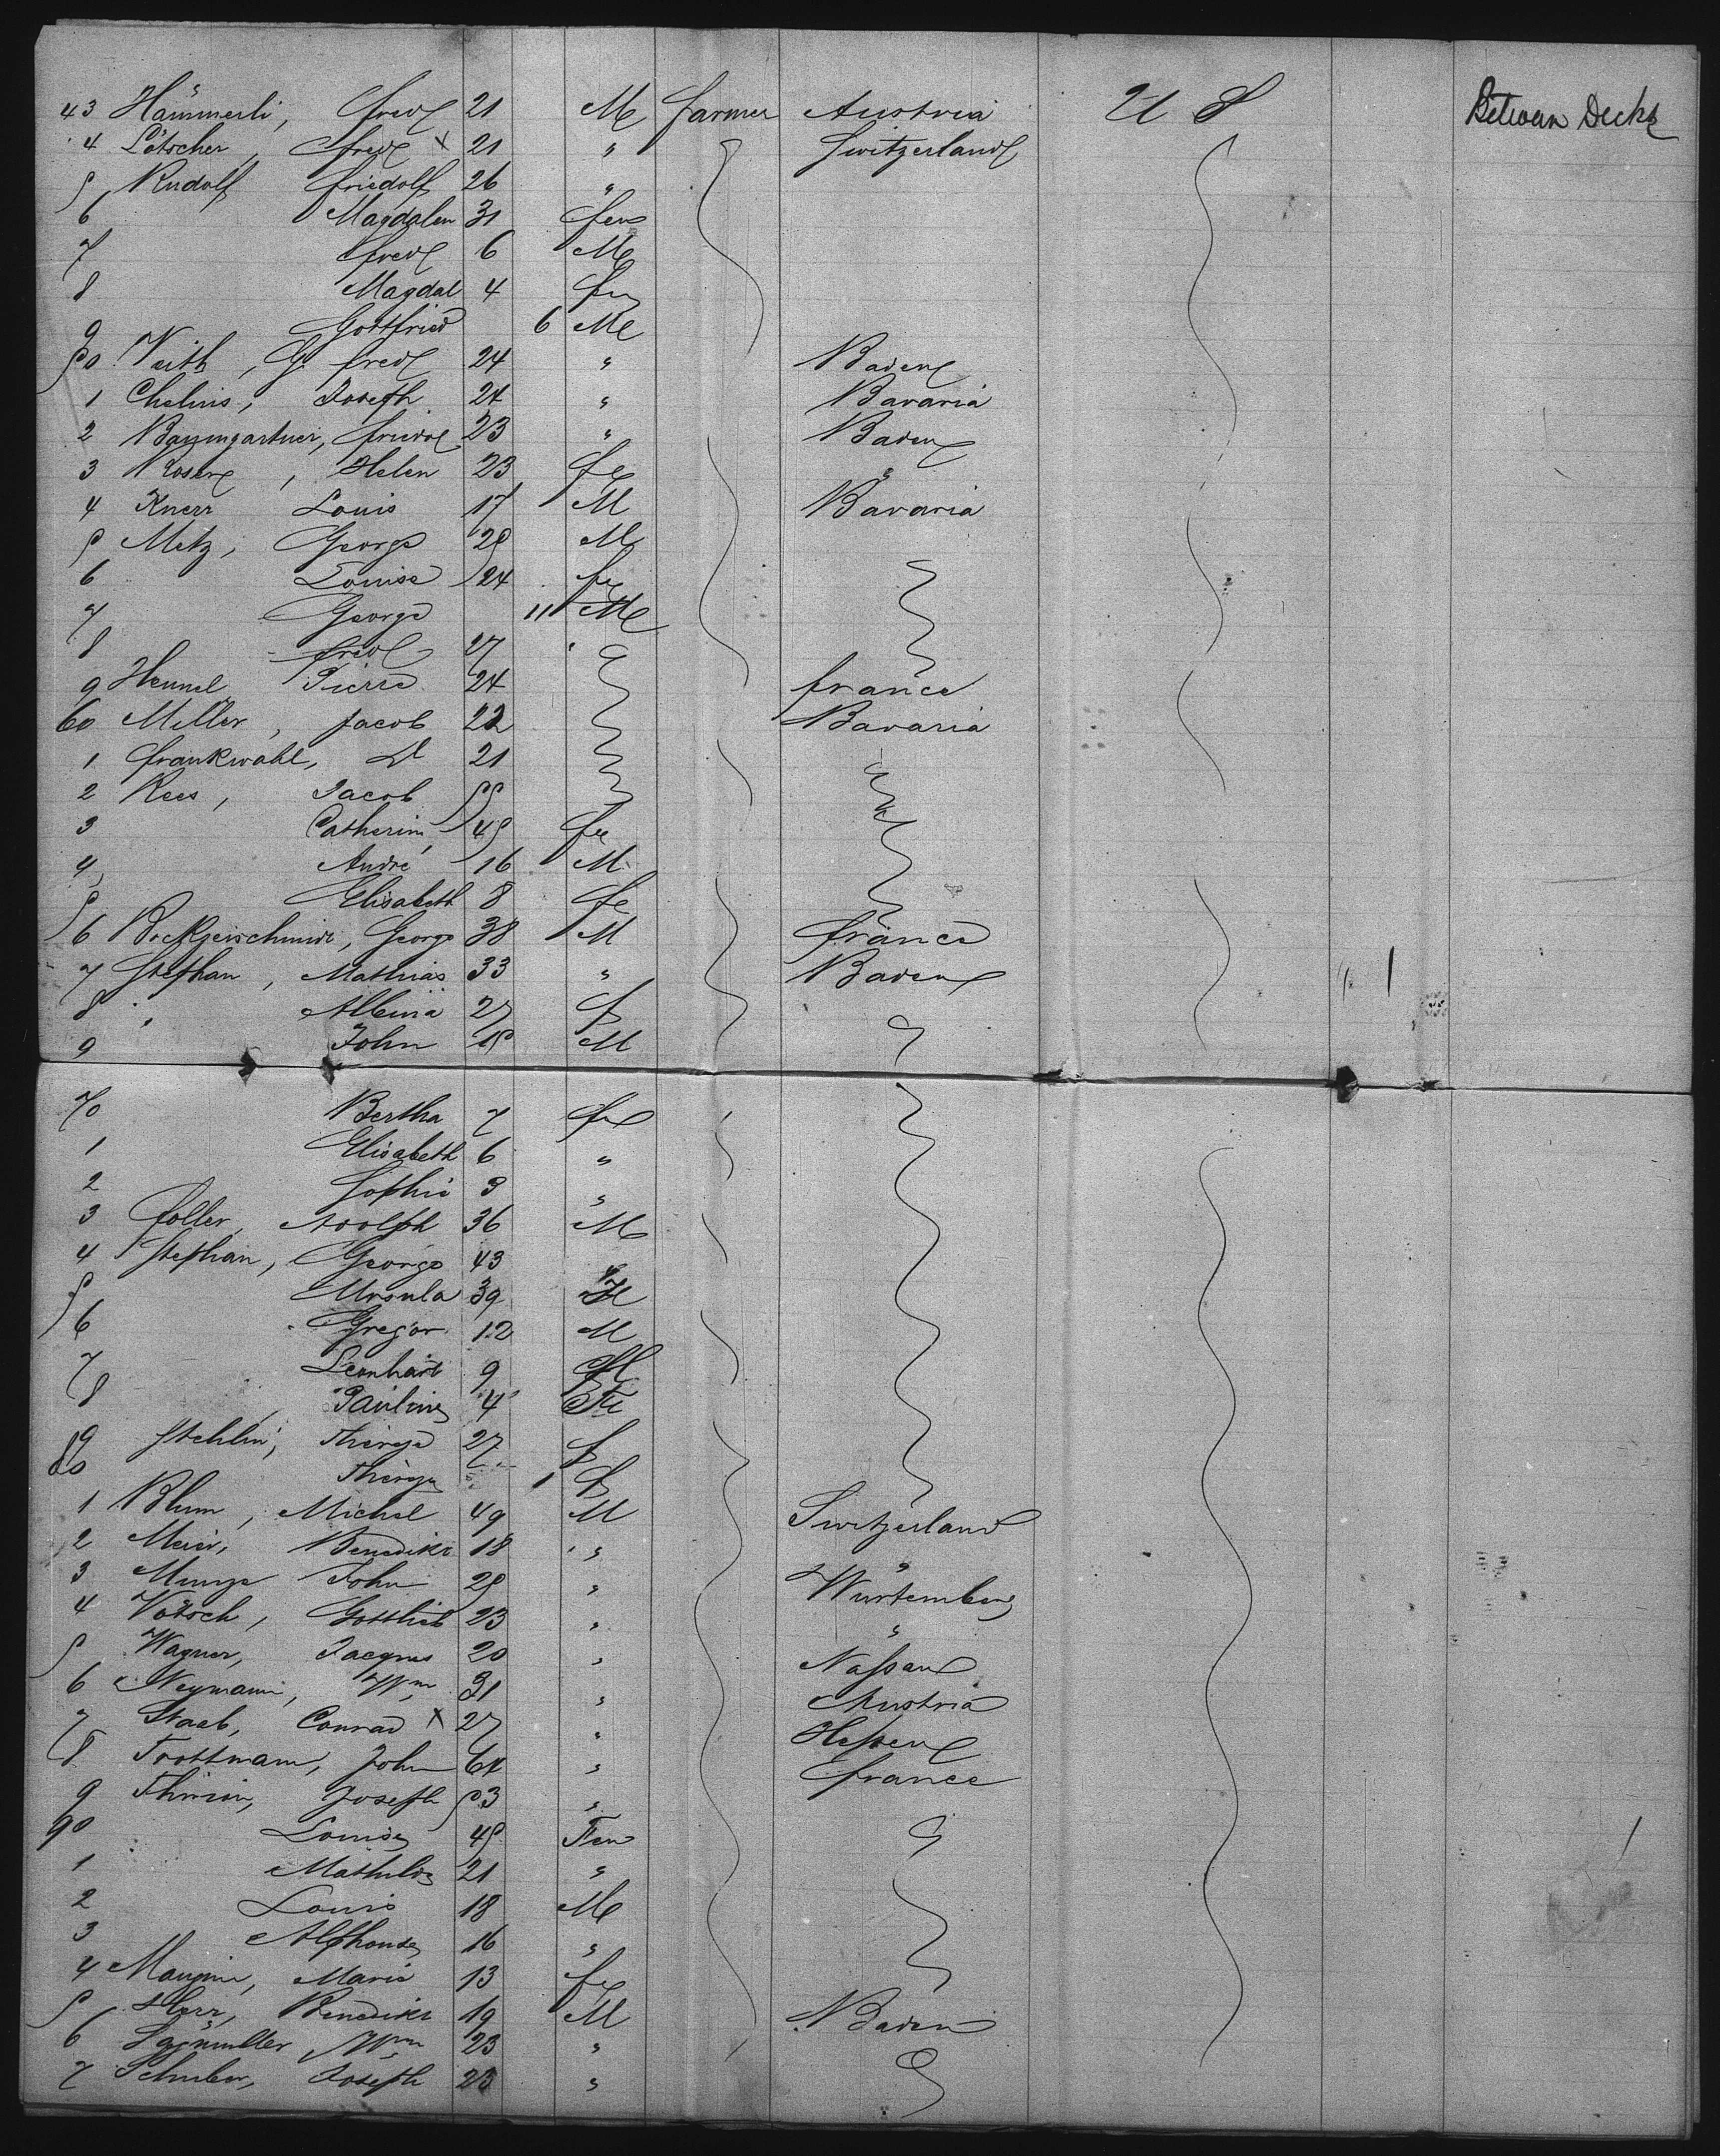 43 Hämmerli, Fred 21 M Farmer Austria U S Between Decks
4 Lötscher, Fred x 21 " Switzerland
5 Rudolf Friedolf 26 "
6 Magdalen 31 Fem
7 Fred 6 M
8 Magdal 4 Fe
9 Gottfried 6 M
50 Veith, G. Fred 24 " Baden
1 Chelius, Joseph 24 " Bavaria
2 Baumgartner, Friedl 23 " Baden
3 Helen 23 Fe "
4 Knerr Louis 17 M Bavaria
5 Metz, George 25 M
6 Louise 24 Fe
7 George 11 M
8 Fred 27
9 Hennel Pierre 24 France
60 Miller, Jacob 22 Bavaria
1 Frankwahl, 21
2 Rees, Jacob 55
3 Catherin 45 Fe
4 André 16 M
5 Elisabeth 8 Fe
6 George 38 M France
7 Stephan, Mathias 33 " Baden
8 " Albina 27 F
9 John 15 M
70 Bertha 7 Fe
1 Elisabeth 6 "
2 Sophie 3 "
3 Foller, Adolph 36 M
4 Stephan, George 43
5 Ursula 39
6 Gregor 12 M
7 Leonhard 9 M
8 Pauline 4 Fe
9 Stehlin, Theresa 27 F
80 Theresa 1 F
1 Blum, Michel 49 M Switzerland
2 Meier, Benedikt 18 " "
3 John 25 " Würtemberg
4 Vötsch, Gottlieb 23 " "
5 Wagner, Jacques 20 " Nassau
6 Neymann, Wm 31 " Austria
7 Staab, Conrad x 27 " Hessen
8 Trottmann, John 64 " France
9 Thirion, Joseph 53 "
90 Louise 45 Fem
1 Mathilde 21 "
2 Louis 18 M
3 Alphonse 16 "
4 Mangin, Marie 13 Fe
5 Herr, Benedikt 19 M Baden
6 Wm 23 "
7 Schuber, Joseph 23 "